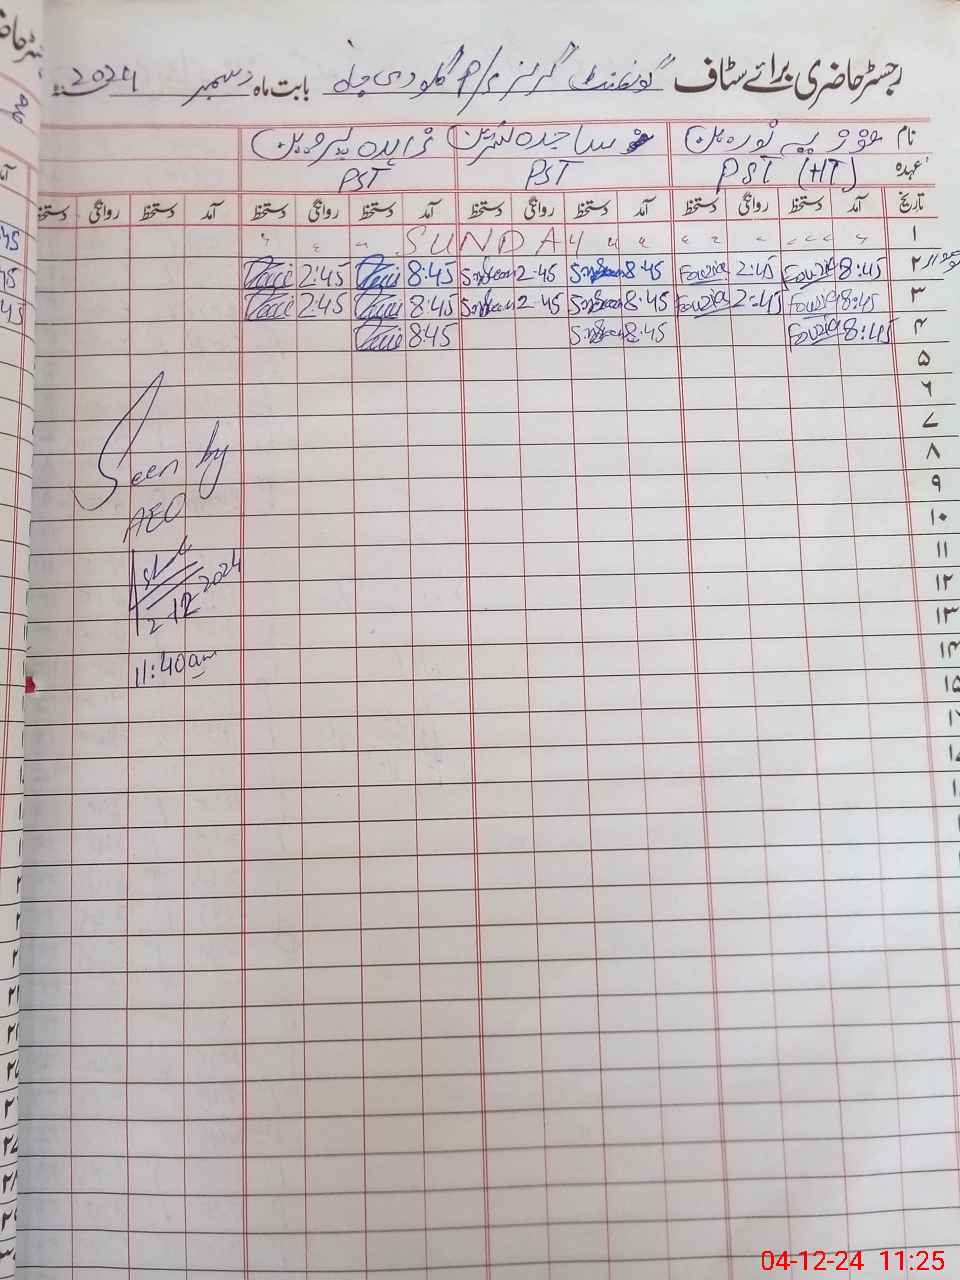 رجسٹر حاضری برائے سٹاف گورنمنٹ گرلز P/S گلو دی چاہ بابت ماہ دسمبر 2024ء
نام فوزیہ نورین ساجدہ نسرین زاہدہ پروین
عہدہ PST (HT) PST PST
تاریخ آمد دستخط روانگی دستخط آمد دستخط روانگی دستخط آمد دستخط روانگی دستخط آمد دستخط روانگی دستخط
۱ SUNDAY
۲ 8:45 Fouzia 2:45 Fouzia 8:45 2:45 8:45 2:45
۳ 8:45 Fouzia 2:45 Fouzia 8:45 2:45 8:45 2:45
۴ 8:45 Fouzia 8:45 8:45
۵
۶
۷
۸
۹
۱۰
۱۱
۱۲
۱۳
۱۴
۱۵
Seen by
AEO
2-12-2024
11:40am
04-12-24 11:25